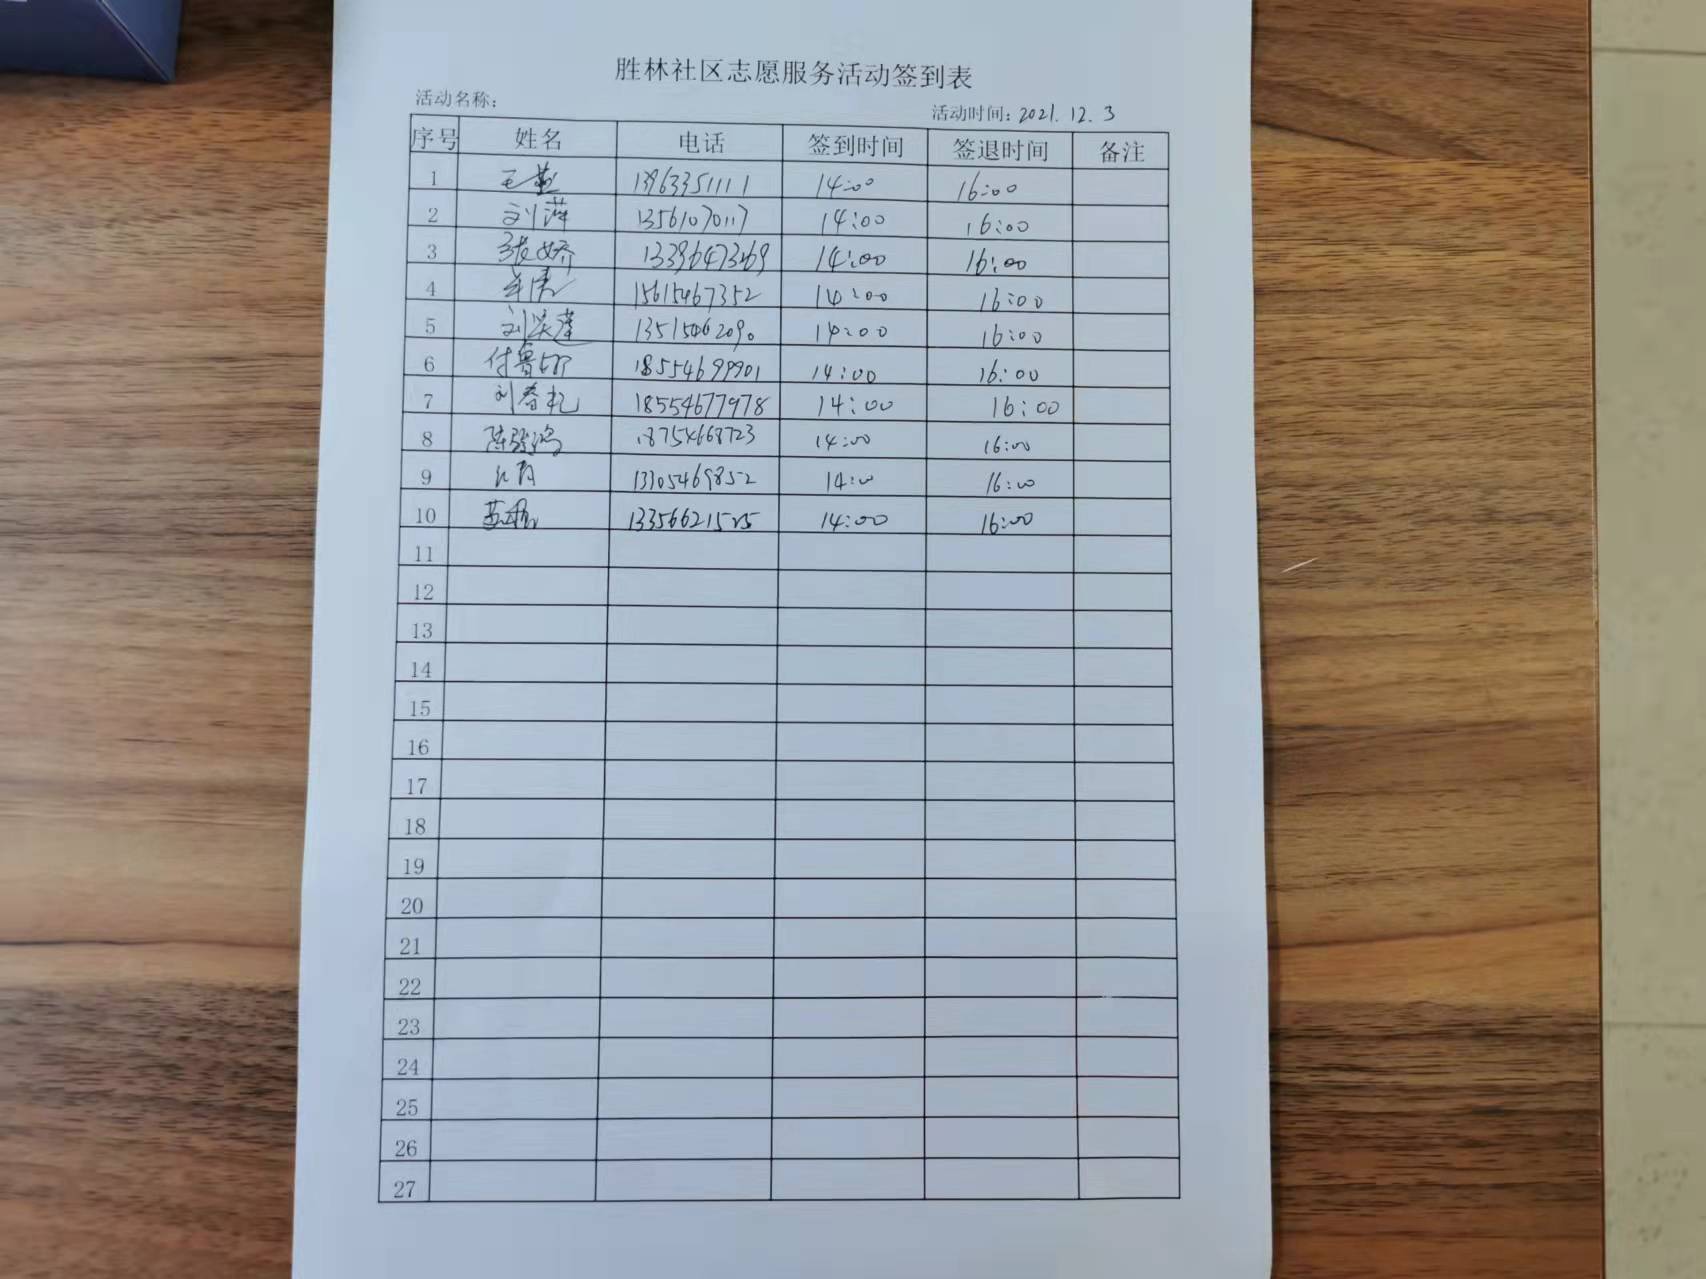 胜林社区志愿服务活动签到表
活动名称： 活动时间：2021.12.3
序号 姓名 电话 签到时间 签退时间 备注
1 13963351111 14:00 16:00
2 刘萍 13561070117 14:00 16:00
3 张娇 14:00 16:00
4 15615467352 14:00 16:00
5 刘 13515462090 14:00 16:00
6 付鲁 18554699901 14:00 16:00
7 刘春礼 18554677978 14:00 16:00
8 陈 18754668723 14:00 16:00
9 13305469852 14:00 16:00
10 苏 13356621525 14:00 16:00
11
12
13
14
15
16
17
18
19
20
21
22
23
24
25
26
27